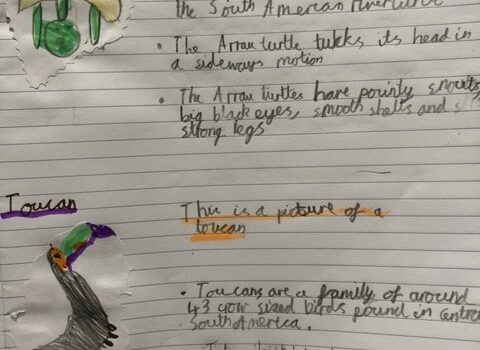 the South American
• The Arrau turtle tukks its head in
a sideways motion
• The Arrau turtles have pointy snouts,
big black eyes, smooth shells and
strong legs
Toucan
This is a picture of a
toucan
• Toucans are a family of around
43 crow sized birds found in centra
South America.